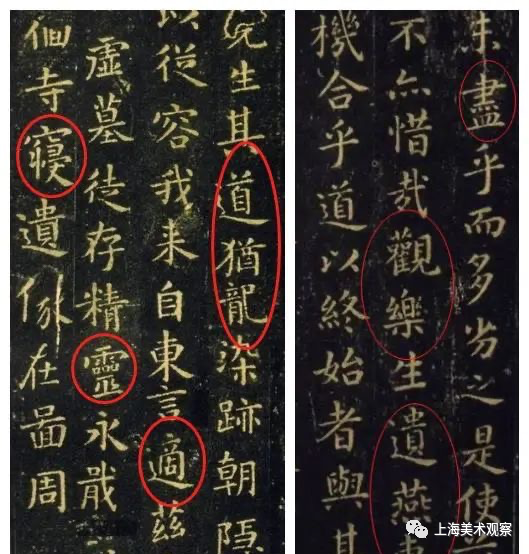 先生其道猶龍染跡朝隱
以從容我来自東言適茲
虛墓徒存精靈永戢
佪寺寢遺像在啚周
未盡乎而多劣之是使
不亦惜哉觀樂生遺燕
機合乎道以終始者與其
上海美术观察